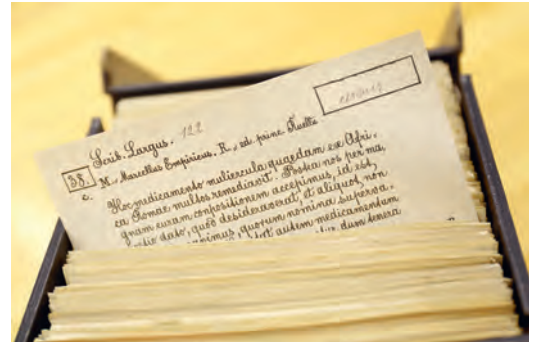 Scrib. Largus. 122
38. M., Marcellus Empiricus. R., ed. princ. Ruellii
c.
Hoc medicamento muliercula quaedam ex Afri-
ca Romae multos remediavit. Postea nos per ma-
gnam curam conpositionem accepimus, id est,
dato, quod desideraverat, et aliquot, non
quorum nomina superva-
autem medicamentum
dum tenera